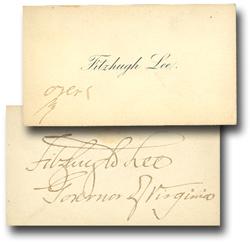 Fitzhugh Lee.
over
Fitzhugh Lee
Governor of Virginia